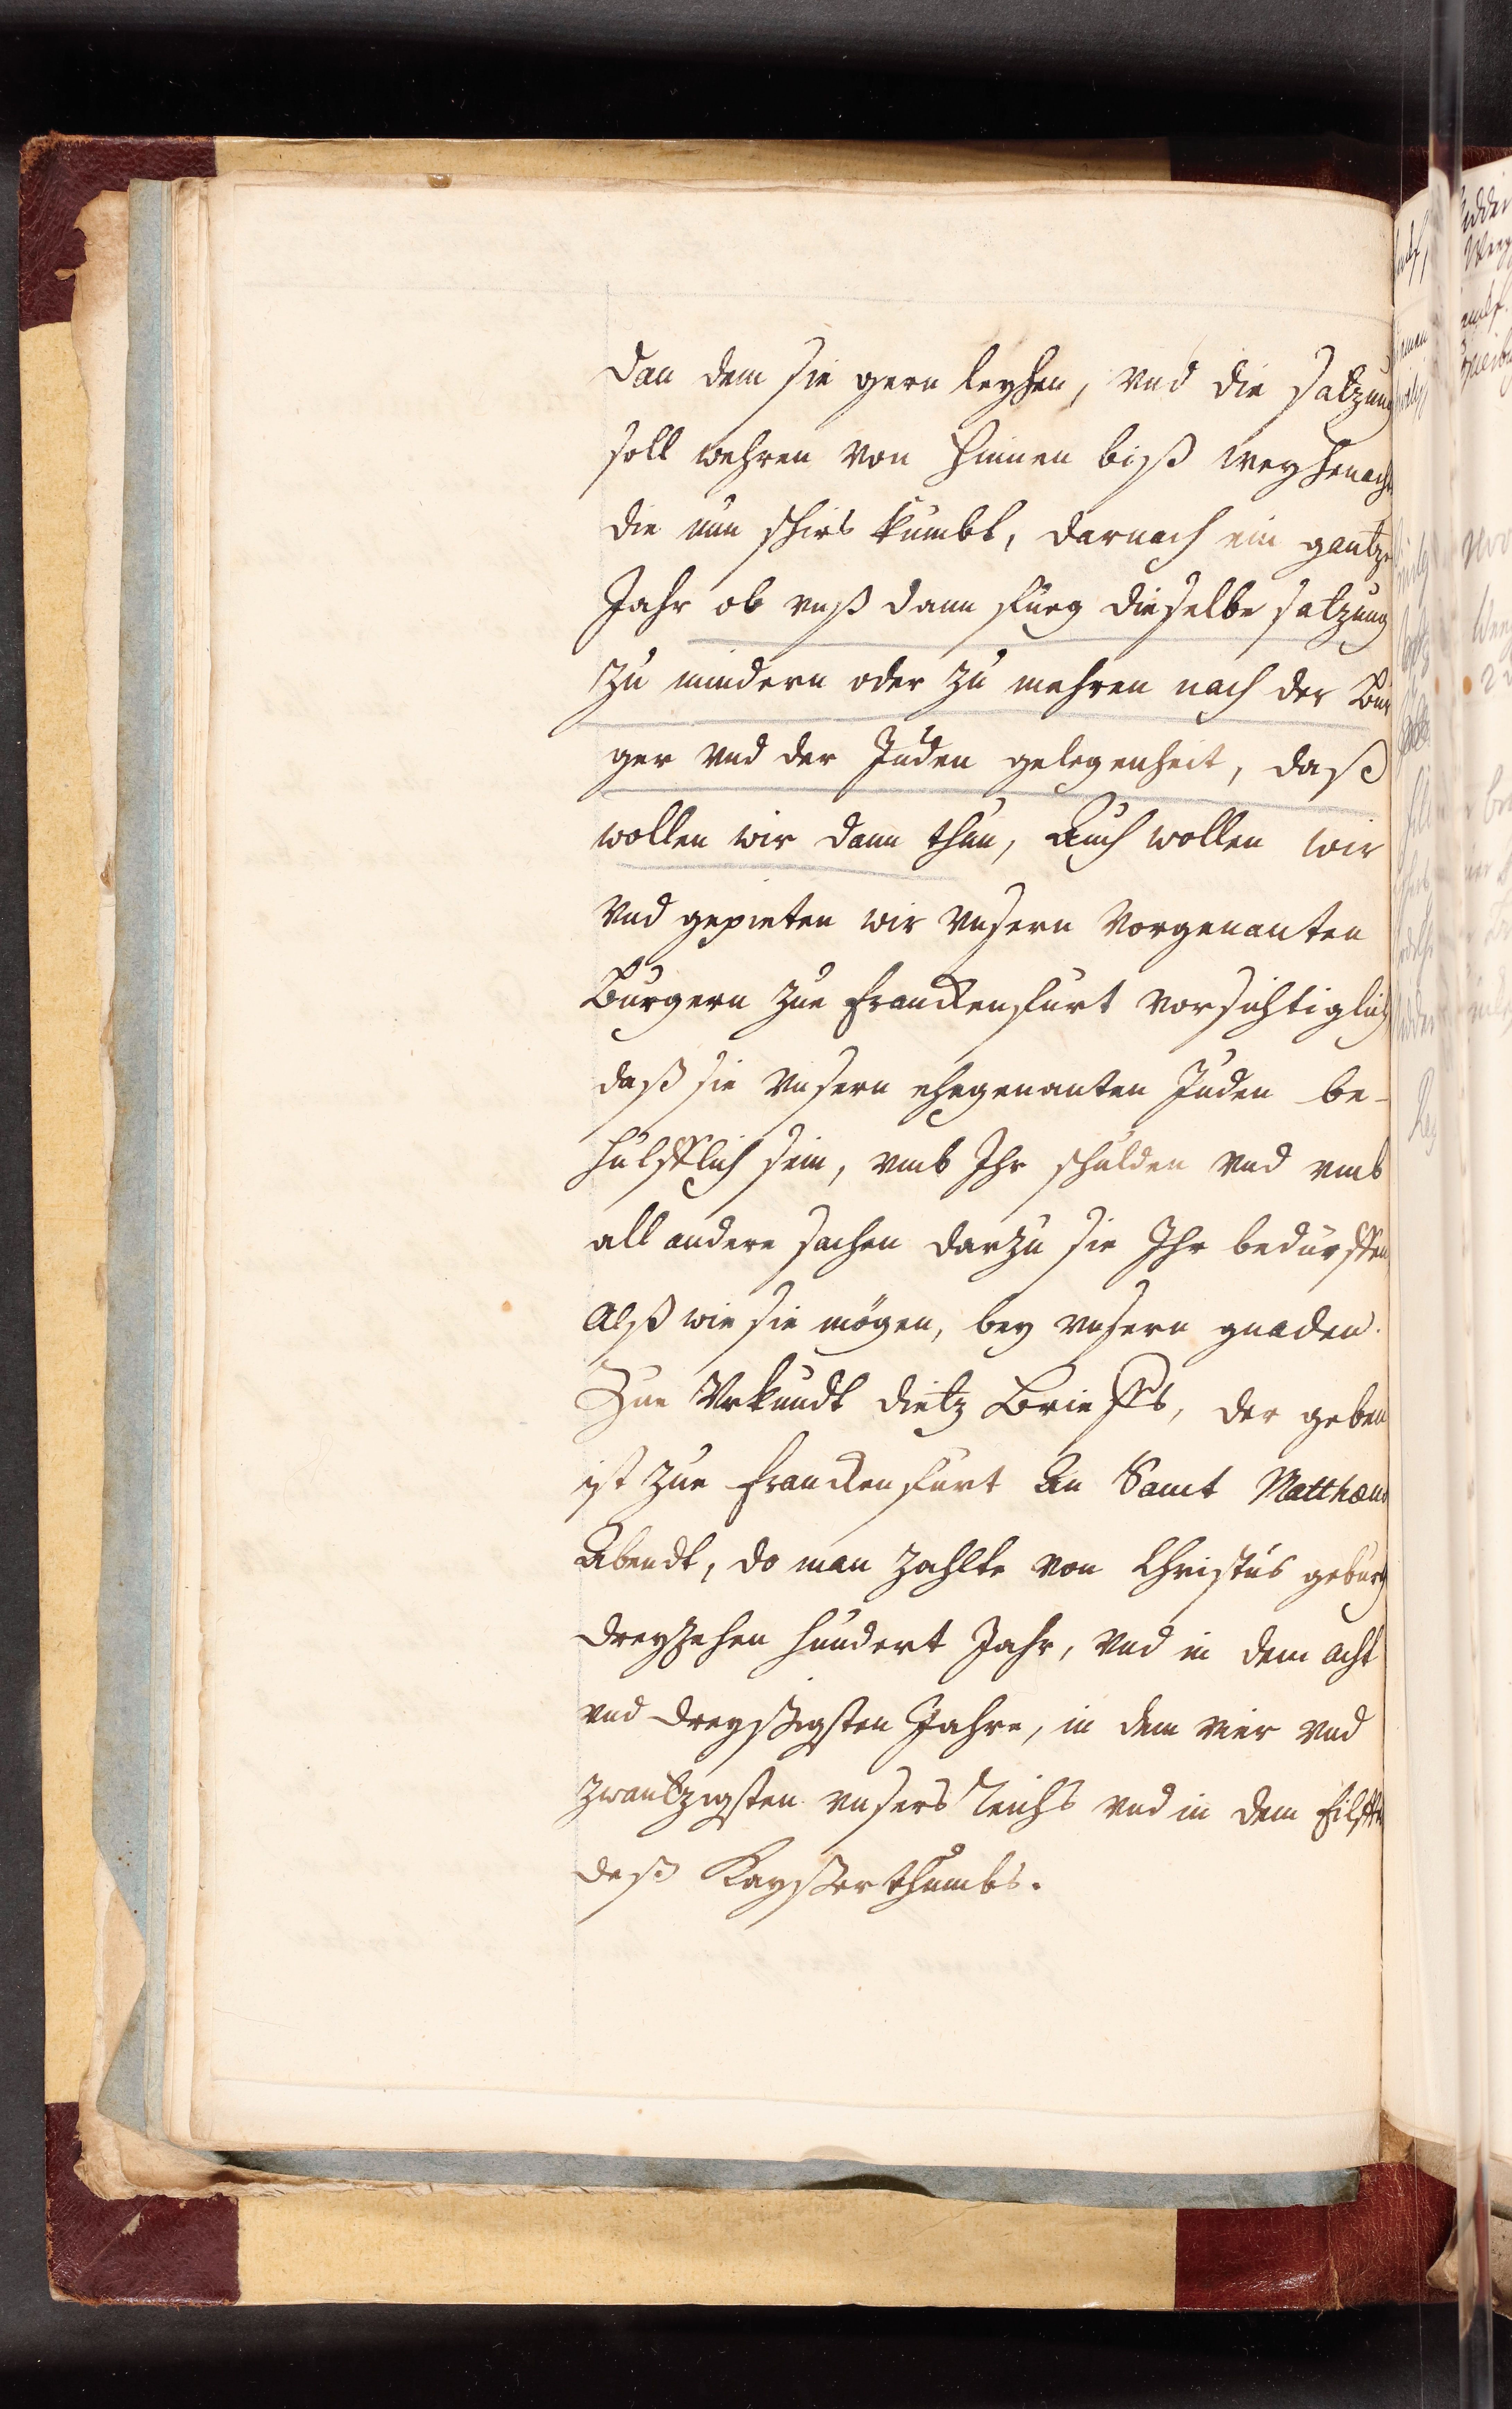 dan dem sie gern leyhen, vnd die satzung
soll wehren von hinnen biß weyhenacht
die nun schirs kumbt, darnach ein gantze
Jahr ob vnß dann fueg dieselbe satzung
zu mindern oder zu mehren nach der Bur
ger vnd der Juden gelegenheit, daß
wollen wir dann thun, Auch wollen wir
vnd gepieten wir vnsern vorgenanten
Burgern zue Franckenfurt vorsichtiglich
daß sie vnsern ehegenanten Juden be-
hulfflich sein, vmb Ihr schulden vnd vmb
all andere sachen darzu sie Ihr bedürffen
Alß wie sie mögen, bey vnsern gnaden.
Zue Vrkundt dietz Brieffs, der geben
ist zue Franckenfurt An Sanct Matthæus
Abendt, do man zahlte von Christus geburth
dreyzehen hundert Jahr, vnd in dem acht
vnd dreyßigsten Jahre, in dem vier vnd
zwantzigsten vnsers Reichs vnd in dem Eilfften
deß Kayßerthumbs.